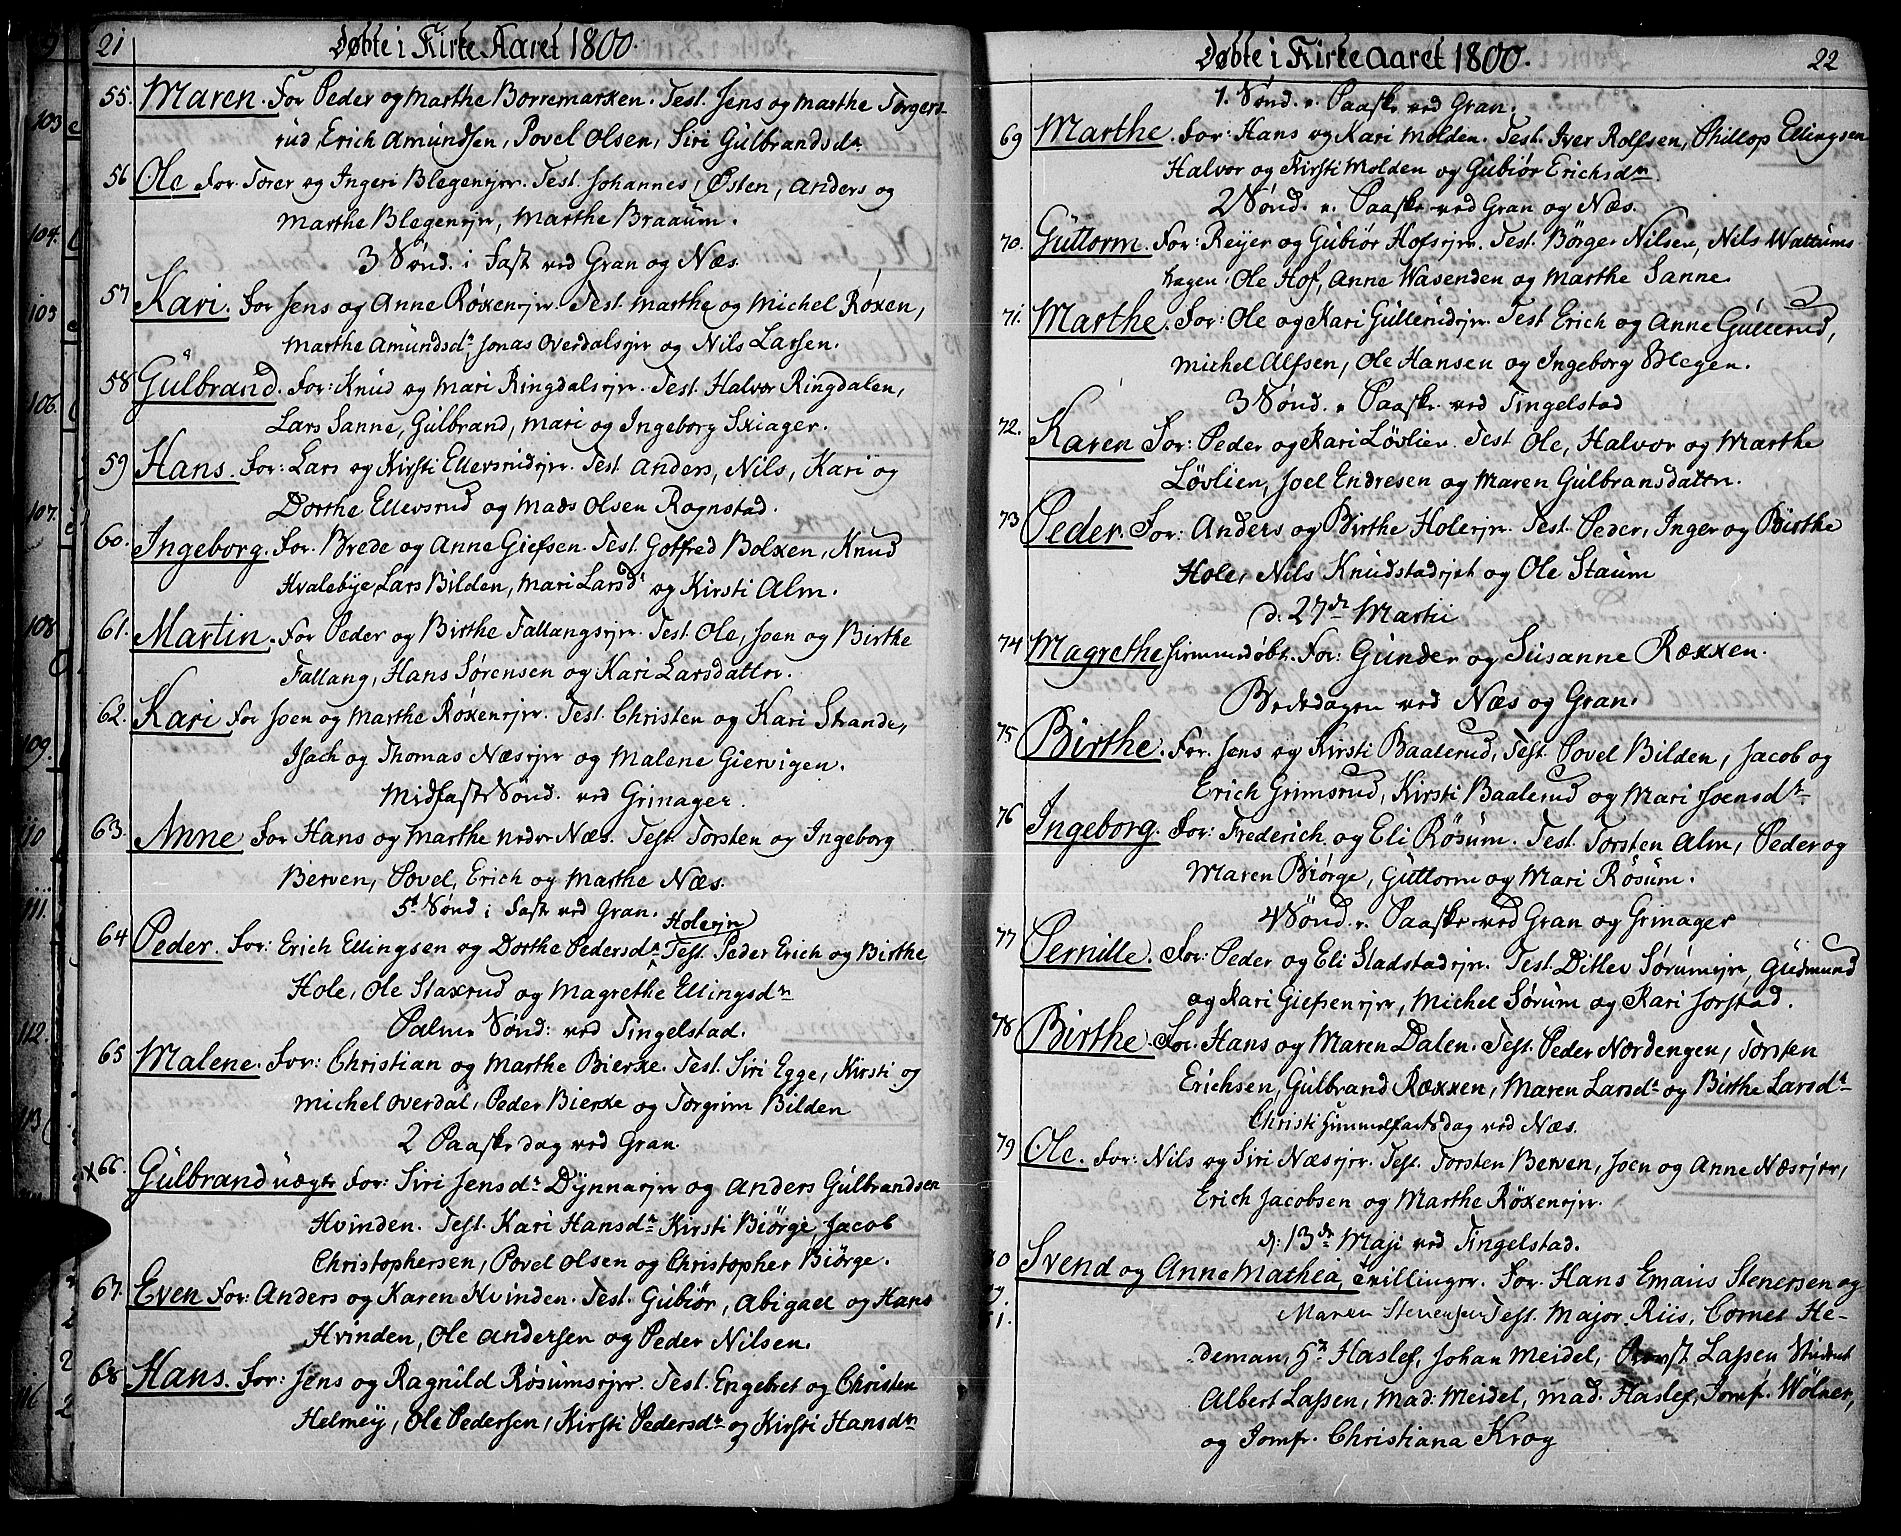 21 Døbte i Kirke Aaret 1800.
55. Maren. For Peder og Marthe Borremarken. Test. Jens og Marthe Torgers-
rud, Erich Amundsen, Povel Olsen, Siri Gulbrandsdr
56 Ole For Torer og Ingeri Blegenejer. Test. Johannes, Østen, Anders og
Marthe Blegenejer, Marthe Braaum.
3 Sønd. i Fast ved Gran og Næs.
57 Kari. For Jens og Anne Røxenejer. Test. Marthe og Michel Røxen,
Marthe Amundsdr Jonas Overdalsejer og Nils Larsen.
58 Gulbrand. For: Knud og Mari Ringdalsejer. Test. Halvor Ringdalen,
Lars Sanne, Gulbrand, Mari og Ingeborg Skiager.
59 Hans. For: Lars og Kirsti Ellevsrudejer. Test. Anders, Nils, Kari og
Dorthe Ellevsrud og Mads Olsen Rognstad.
60. Ingeborg. For. Brede og Anne Giefsen. Test. Gotfred Bolken, Knud
Hvalebye, Lars Bilden, Mari Larsdr og Kirsti Alm.
61. Martin. For Peder og Birthe Fallangsejer. Test. Ole, Joen og Birthe
Fallang, Hans Sørensen og Kari Larsdatter.
62. Kari For Joen og Marthe Røxenejer. Test. Christen og Kari Strande,
Isach og Thomas Næsejer og Malene Giervigen.
Midfaste Sønd. ved Grinager.
63. Anne For Hans og Marthe nedre Næs. Test. Torsten og Ingeborg
Berven, Povel, Erich og Marthe Næs.
5t Sønd i Fast ved Gran.
Holeejer
64 Peder. For: Erich Ellingsen og Dorthe Pedersdr Test. Peder Erich og Birthe
Hole, Ole Staxrud og Magrethe Ellingsdr
Palme Sønd: ved Tingelstad.
65 Malene. For: Christian og Marthe Bierke. Test. Siri Egge, Kirsti og
Michel Overdal, Peder Bierke og Torgrim Bilden
2 Paaske dag ved Gran.
x 66. Gulbrand uægte For: Siri Jensdr Dynnaejer og Anders Gulbrandsen
Hvinden. Test. Kari Hansdr Kirsti Biørge, Jacob
Christophersen, Povel Olsen og Christopher Biørge.
67. Even For: Anders og Karen Hvinden. Test. Gubiør, Abigael og Hans
Hvinden, Ole Andersen og Peder Nilsen.
68. Hans. For: Jens og Ragnild Røsumsejer. Test. Engebret og Christen
Helmey, Ole Pedersen, Kirsti Pedersdr og Kirsti Hansdr
Døbte i Kirke Aaret 1800. 22
1. Sønd. e. Paaske ved Gran.
69 Marthe. For: Hans og Kari Molden. Test. Iver Rolfsen, Phillop Ellingsen
Halvor og Kirsti Molden og Gubiør Erichsdr.
2 Sønd. e. Paaske ved Gran og Næs.
70. Guttorm. For: Reyer og Gubiør Hofsejer. Test. Børger Nilsen, Nils Wattums
hagen. Ole Hof, Anne Wasenden og Marthe Sanne
71. Marthe. For: Ole og Kari Gullerudejer. Test Erich og Anne Gullerud,
Michel Alfsen, Ole Hansen og Ingeborg Blegen.
3 Sønd. e. Paaske ved Tingelstad
72. Karen For: Peder og Kari Løvlien. Test Ole, Halvor og Marthe
Løvlien, Joel Endresen og Maren Gulbransdatter.
73 Peder. For: Anders og Birthe Holeejer. Test. Peder, Inger og Birthe
Hole, Nils Knudstadejet og Ole Staum
d. 27de Martii
74 Magrethe hjemmedøbt. For: Gunder og Susanne Rækken.
Bededagen ved Næs og Gran.
75 Birthe. For. Jens og Kirsti Baalerud, Test. Povel Bilden, Jacob og
Erich Grimsrud, Kirsti Baalerud og Mari Joensdr
76 Ingeborg. For: Frederich og Eli Røsum. Test. Torsten Alm, Peder og
Maren Biørge, Guttorm og Mari Røsum.
4 Sønd. e. Paaske ved Gran og Grinager
77 Pernille. For: Peder og Eli Sladstadejer. Test. Ditlev Sørumejer, Gudmund
og Kari Giefsenejer, Michel Sørum og Kari Jorstad.
78 Birthe. For. Hans og Maren Dalen. Test. Peder Nordengen, Torsten
Erichsen, Gulbrand Rækken, Maren Larsdr og Birthe Larsdr
Christi Himmelfartsdag ved Næs.
79 Ole. For: Nils og Siri Næsejer. Test. Torsten Berven, Joen og Anne Næsejer,
Erich Jacobsen og Marthe Røxenejer.
d: 13de Maji ved Tingelstad.
80 Svend og Anne Mathea, Tvillinger. For: Hans Emaus Stenersen og
Maren Stenersen Test. Major Riis, Cornet He-
deman, Hr Haslef, Johan Meidel, Lassen Student
Albert Lassen, Mad. Meidel, Mad. Haslef, Jomf. Wølner,
og Jomfr. Christiana Krog
103
104.
105
106.
107.
108
109.
110
111.
112.
113
116